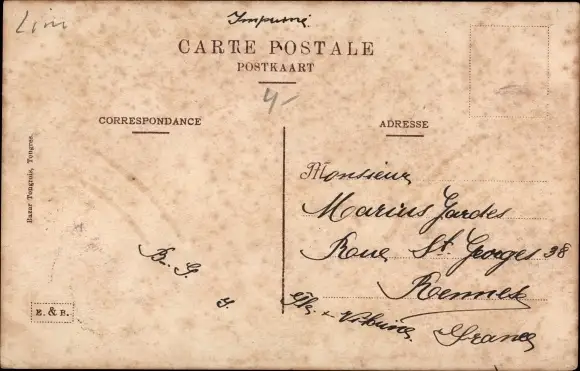 Lim
Imprimé
CARTE POSTALE
POSTKAART
4,-
CORRESPONDANCE
ADRESSE
Bazar Tongrois, Tongres.
Monsieur
Marius Gardes
Roue St Georges 38
Rennes
France
B. G.
E. & B.